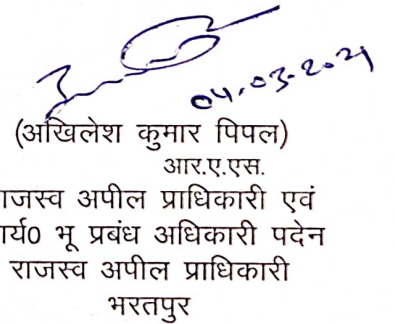 04.03.2021
(अखिलेश कुमार पिपल)
आर.ए.एस.
राजस्व अपील प्राधिकारी एवं
भू प्रबंध अधिकारी पदेन
राजस्व अपील प्राधिकारी
भरतपुर